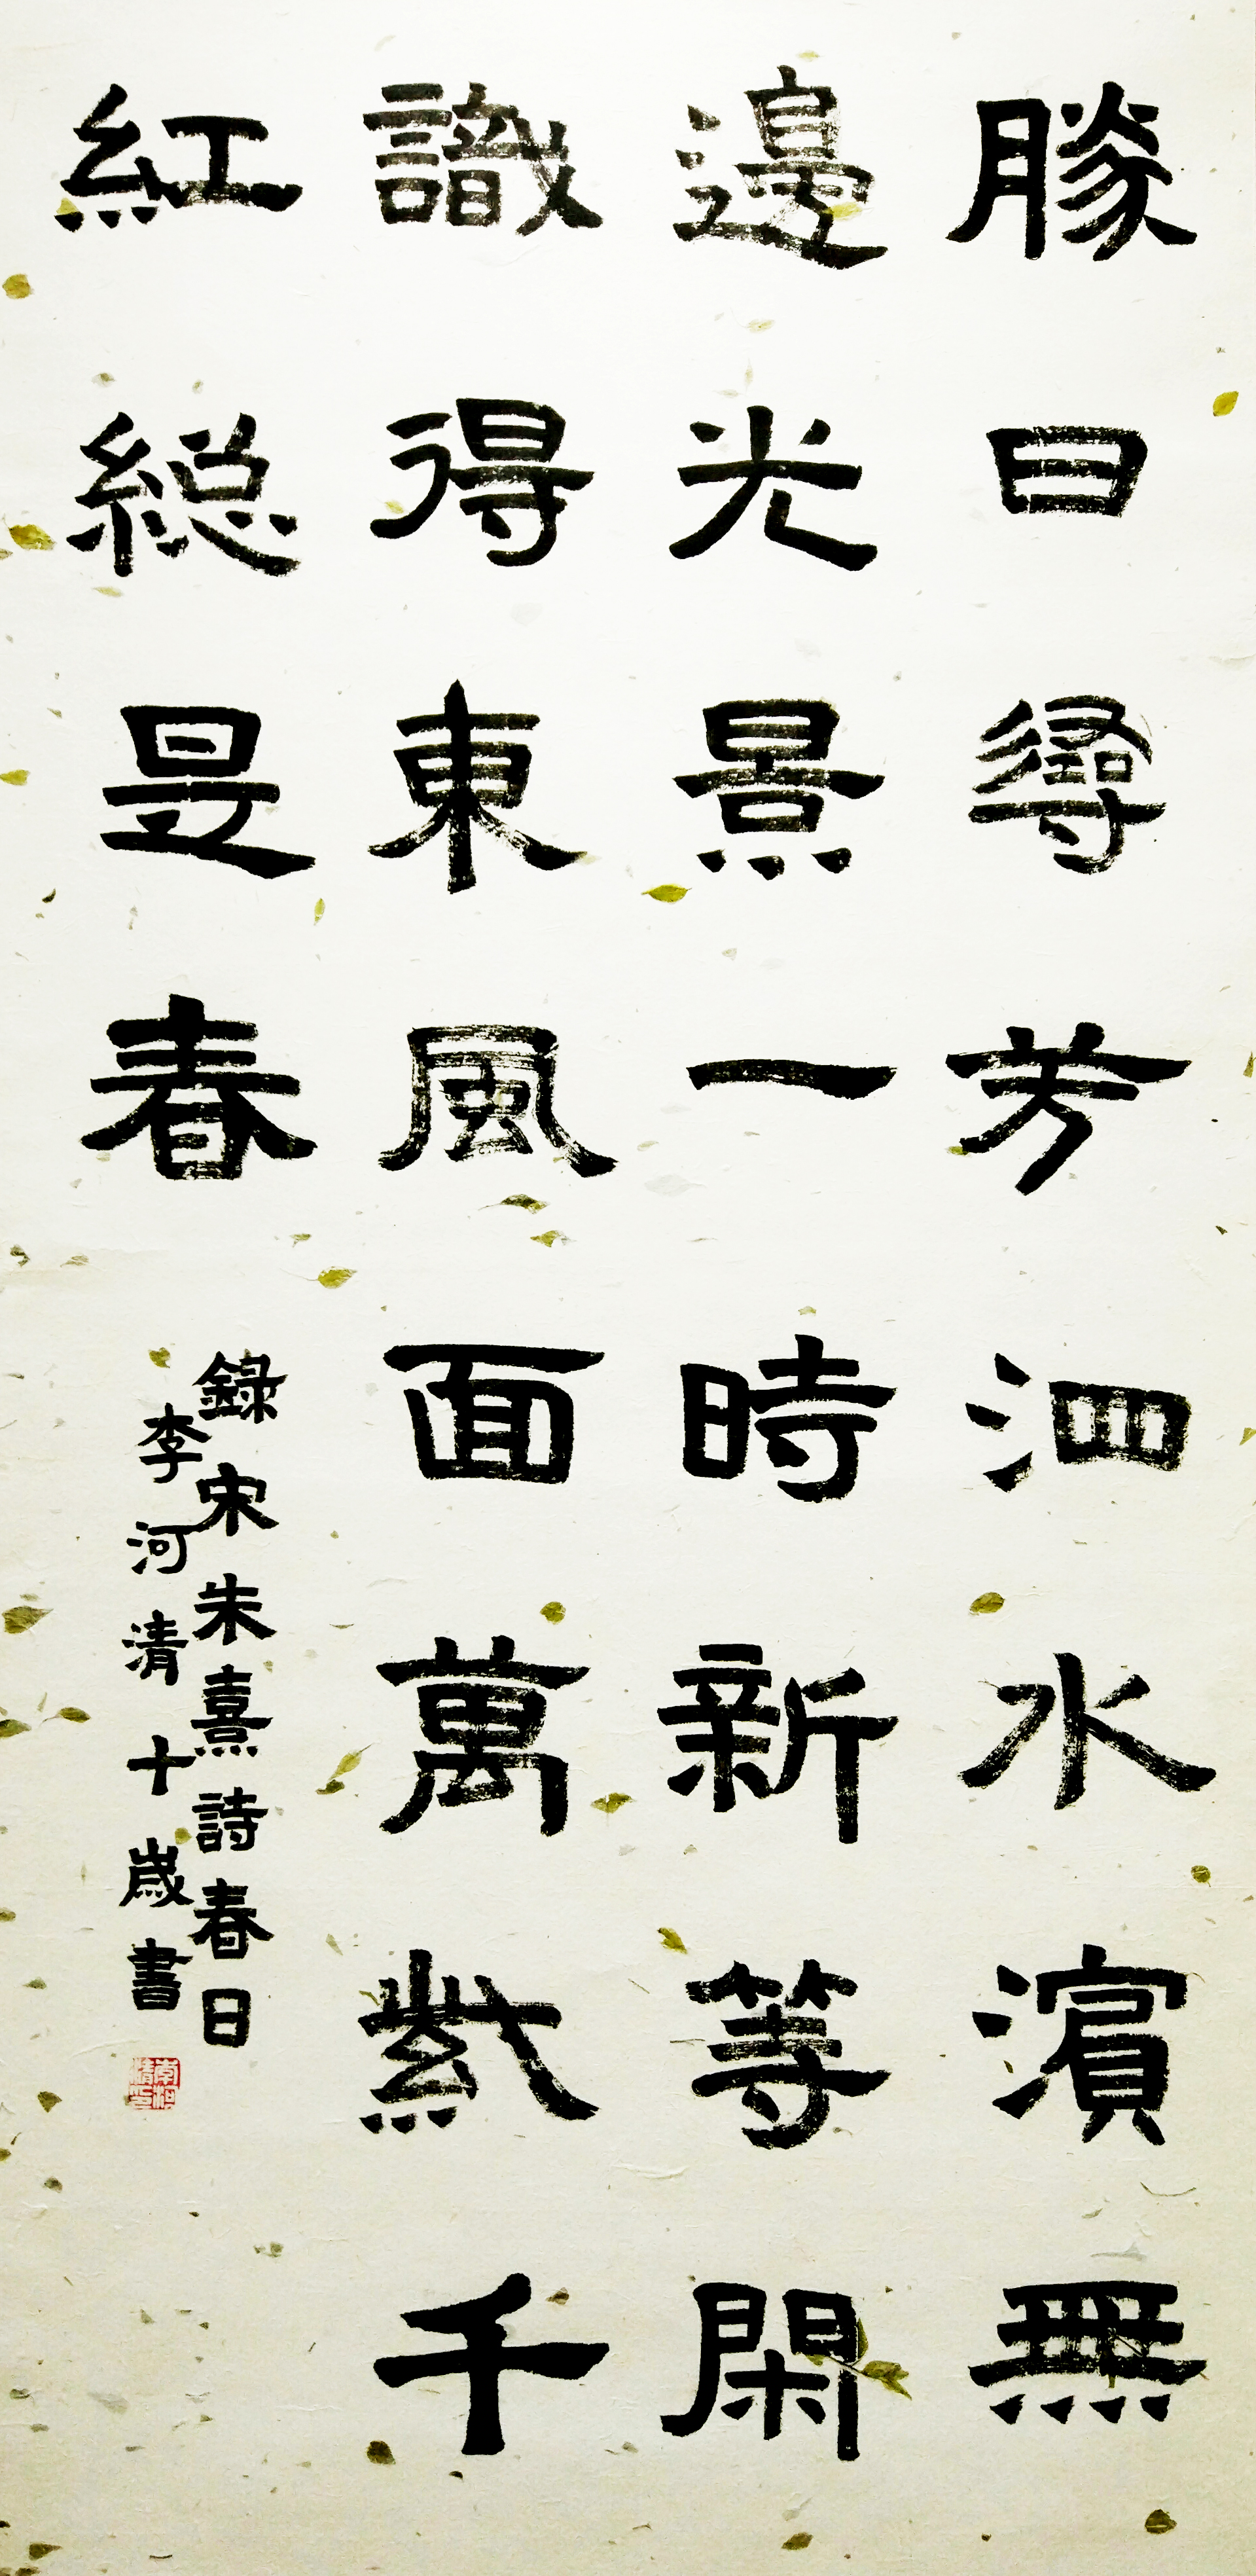 勝日尋芳泗水濱無
邊光景一時新等閑
識得東風面萬紫千
紅總是春
錄宋朱熹詩春日
李河清十歲書